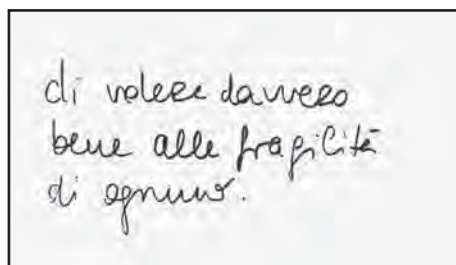 di volere davvero
bene alle fragilità
di ognuno.